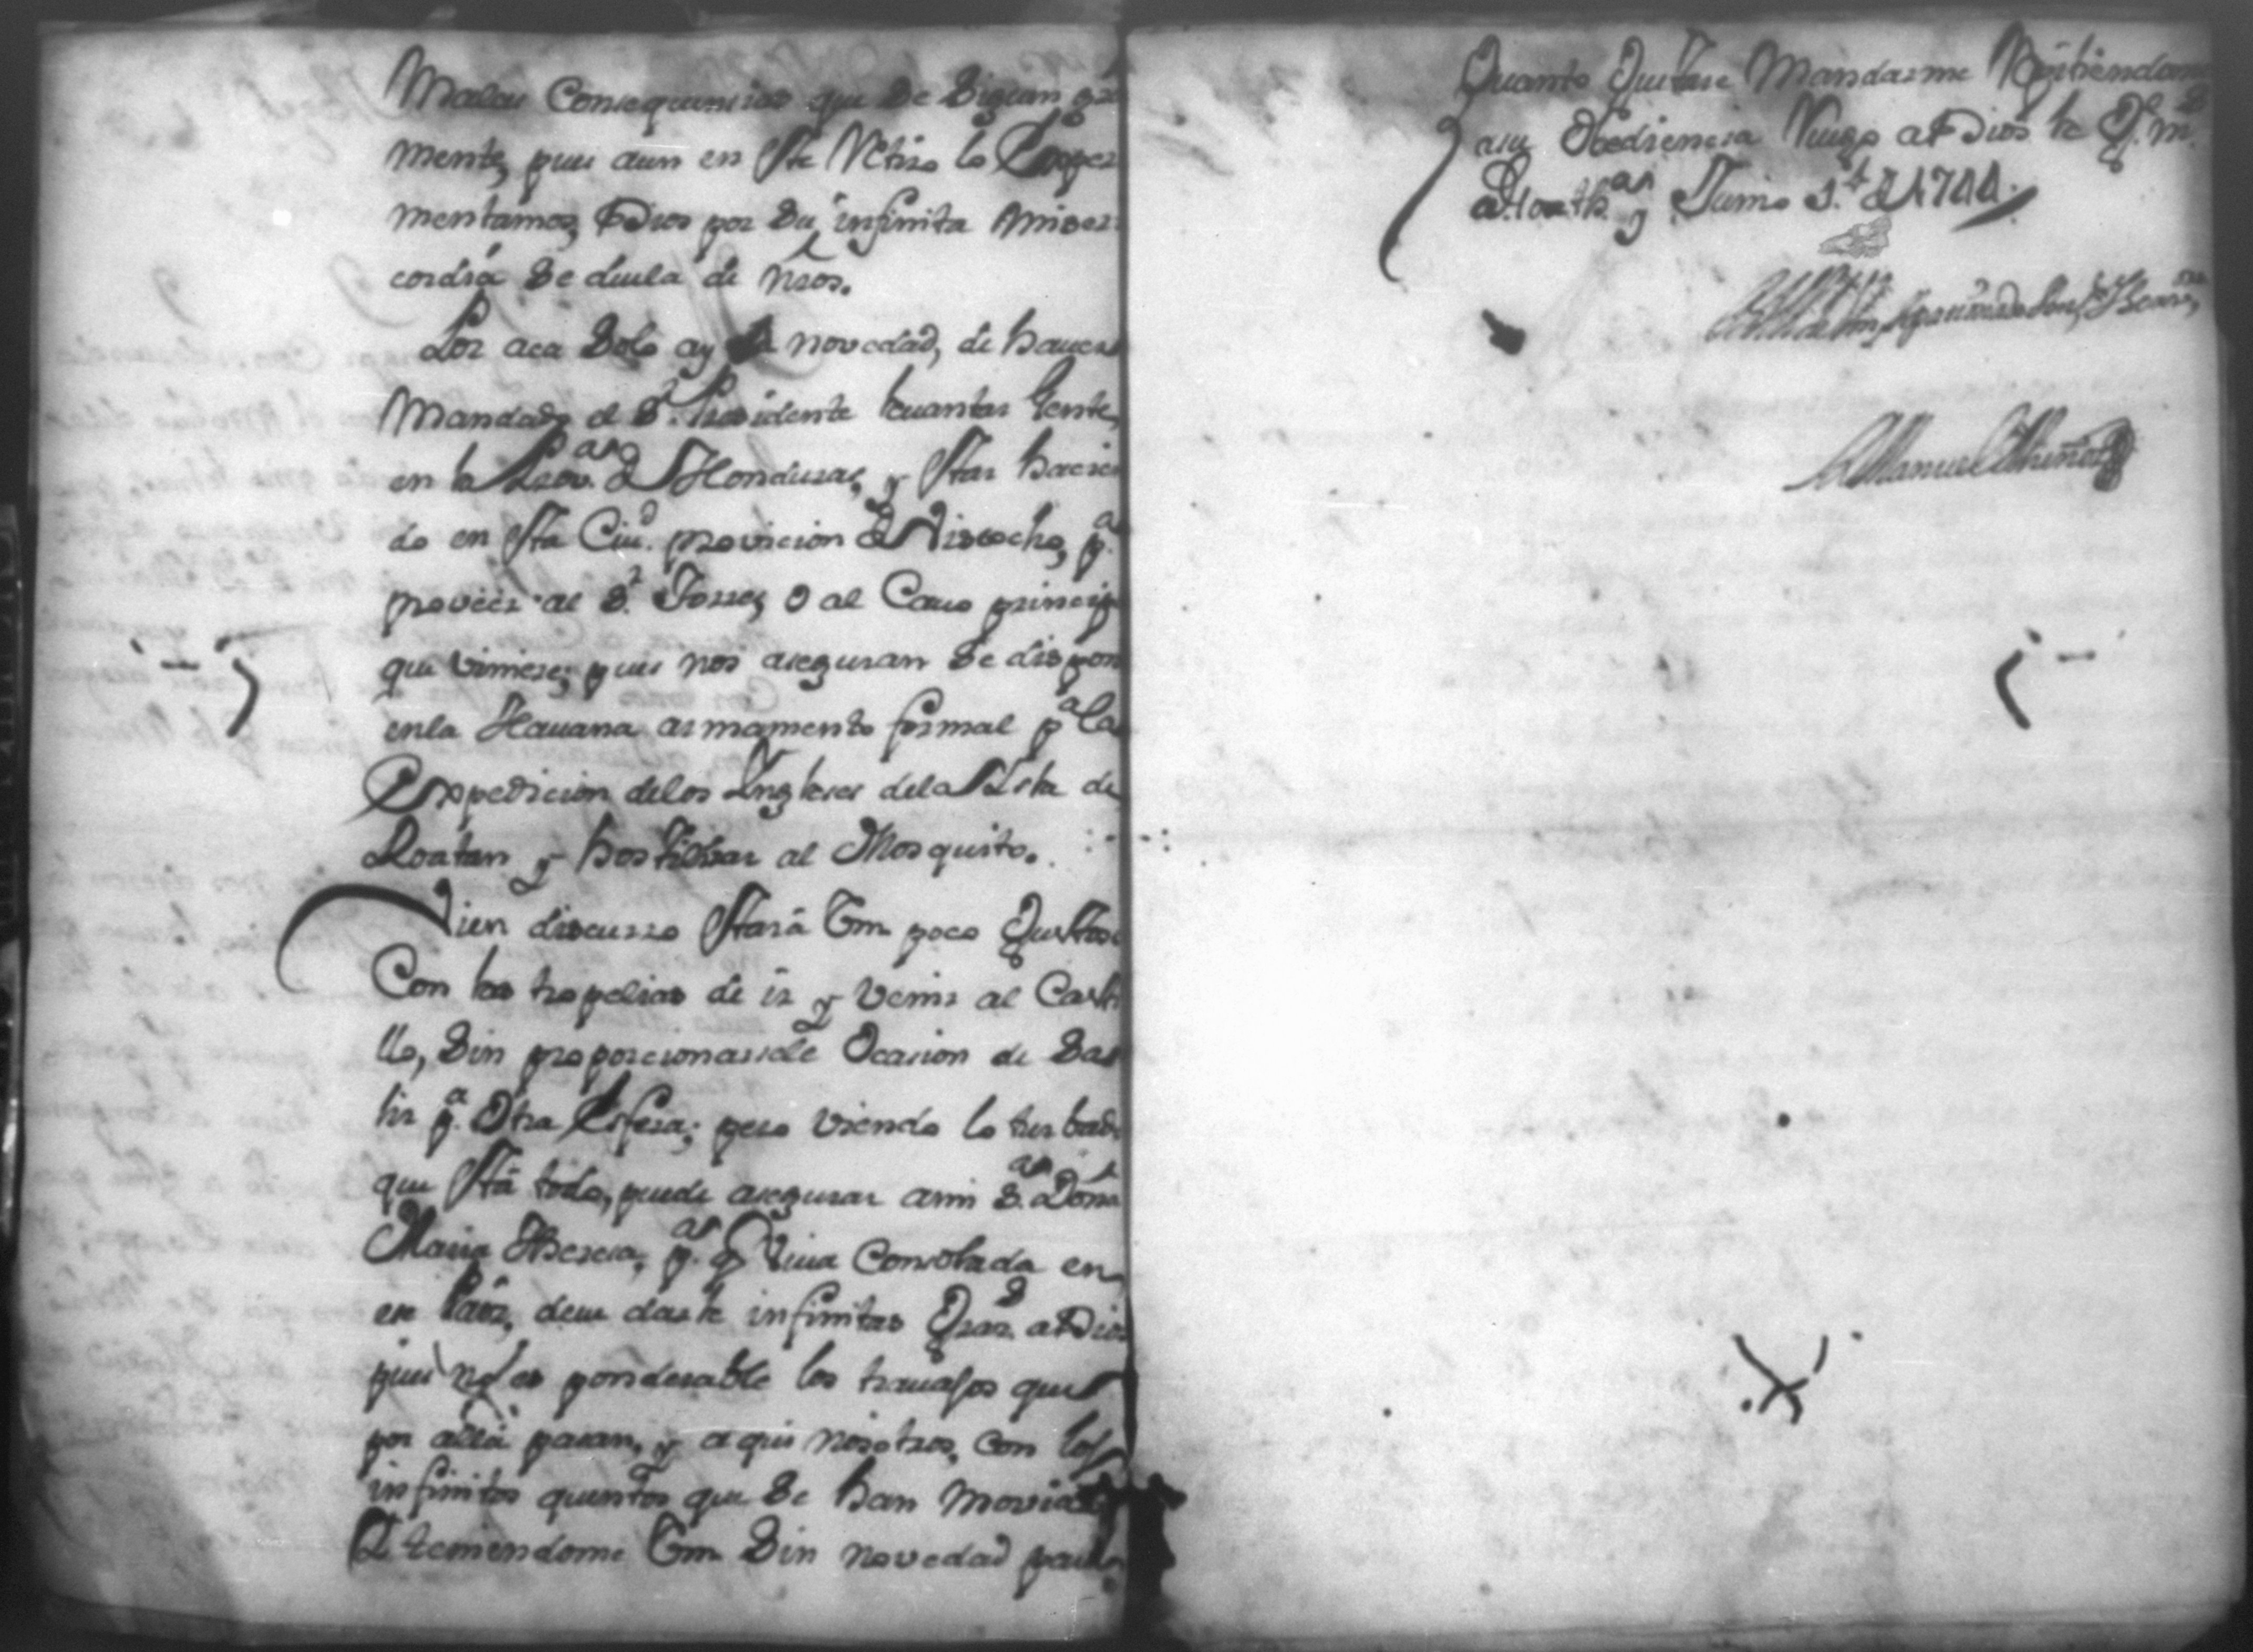 Malas Consequencias que se siguen gral
mente, pues aun en este Retiro lo Exper
mentamos, Dios por su infinita Miser
cordia se duela de nros.
Por aca solo ay la novedad, de haver
Mandado el Sr. Presidente levantar Gente,
en la Prova. de Honduras, y estar hacien
do en esta Ciud. provicion de Viscocho, pa.
proveer al Sr. Torres, o al Cavo princip
que viniere; pues nos aseguran se dispon
en la Havana armamento formal pa. la
Expedicion delos Ingleses dela Isla de
Roatan y hostilisar al Mosquito.
Vien discurro estará Vm. poco Gustoso
Con las tropelias de ir y venir al Casti
llo, sin proporcionarsele Ocasion de sa
lir pa. Otra esfera; pero viendo lo turbado
que está todo, puede asegurar a mi Sa. Doña
Maria Theresa, pa. q viva Consolada en
en Paiz, deve darle infinitas Gras. a Dios
pues no es ponderable los travajos que
por allá pasan, y aqui nosotros, con los
infinitos quentos que se han movido
Y teniendome Vm. sin novedad para
Quanto Gustare Mandarme Repitiendome
a su Obediencia Ruego a Dios le Ge. ms. as.
Goatha. y Junio 1. de 1744.
Manuel Muñoz